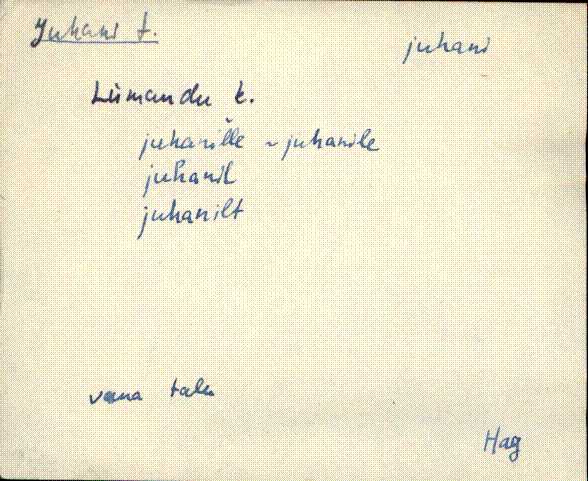 Juhani t.
juhani
Liimandu k.
juhanil̆le ~ juhanile
juhanil
juhanilt
vana talu
Hag